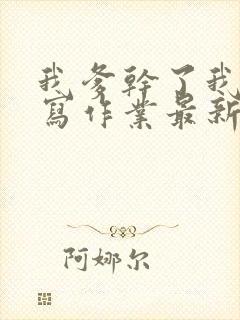 我爹幹了我
寫作業最新
阿娜尔